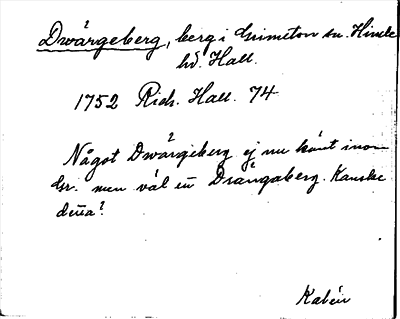 Dwärgeberg, berg i Grimeton sn. Himle
hd. Hall.
1752 Rich. Hall. 74
Något Dwärgeberg ej nu känt inom
Gr. men väl en Drängaberg. Kanske
detta?
Kalén